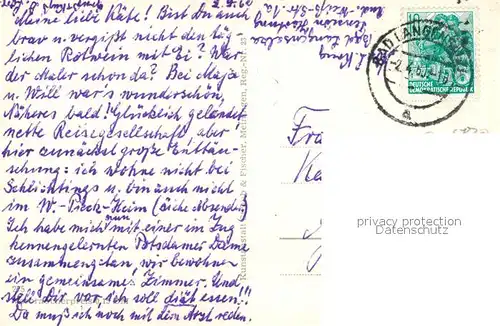 Meine liebe Käte! Bist Du auch
brav u. vergißt nicht den täg-
lichen Rotwein mit Ei? War
der Maler schon da? Bei
u. Will war's wunderschön,
Näheres bald! Glücklich gelandet
nette Reisegesellschaft aber
hier zunächst große Enttäu-
schung: ich wohne nicht bei
Schlichtings u. bin auch nicht
im W.-Pieck-Heim (siehe Absender)
Ich habe mich nun mit einer im Zug
kennengelernten Potsdamer Dame
zusammengetan, wir bewohnen
ein gemeinsames Zimmer. Und
stell Dir vor, ich soll diät essen!!!
Da muß ich noch mit dem Arzt reden.
Kunstanstalt & Fischer, Reg.-Nr.
BAD LANGENSALZA
-2.
a
10
DEUTSCHE
DEMOKRATISCHE REPUBLIK
Bad Langensalza
privacy protection